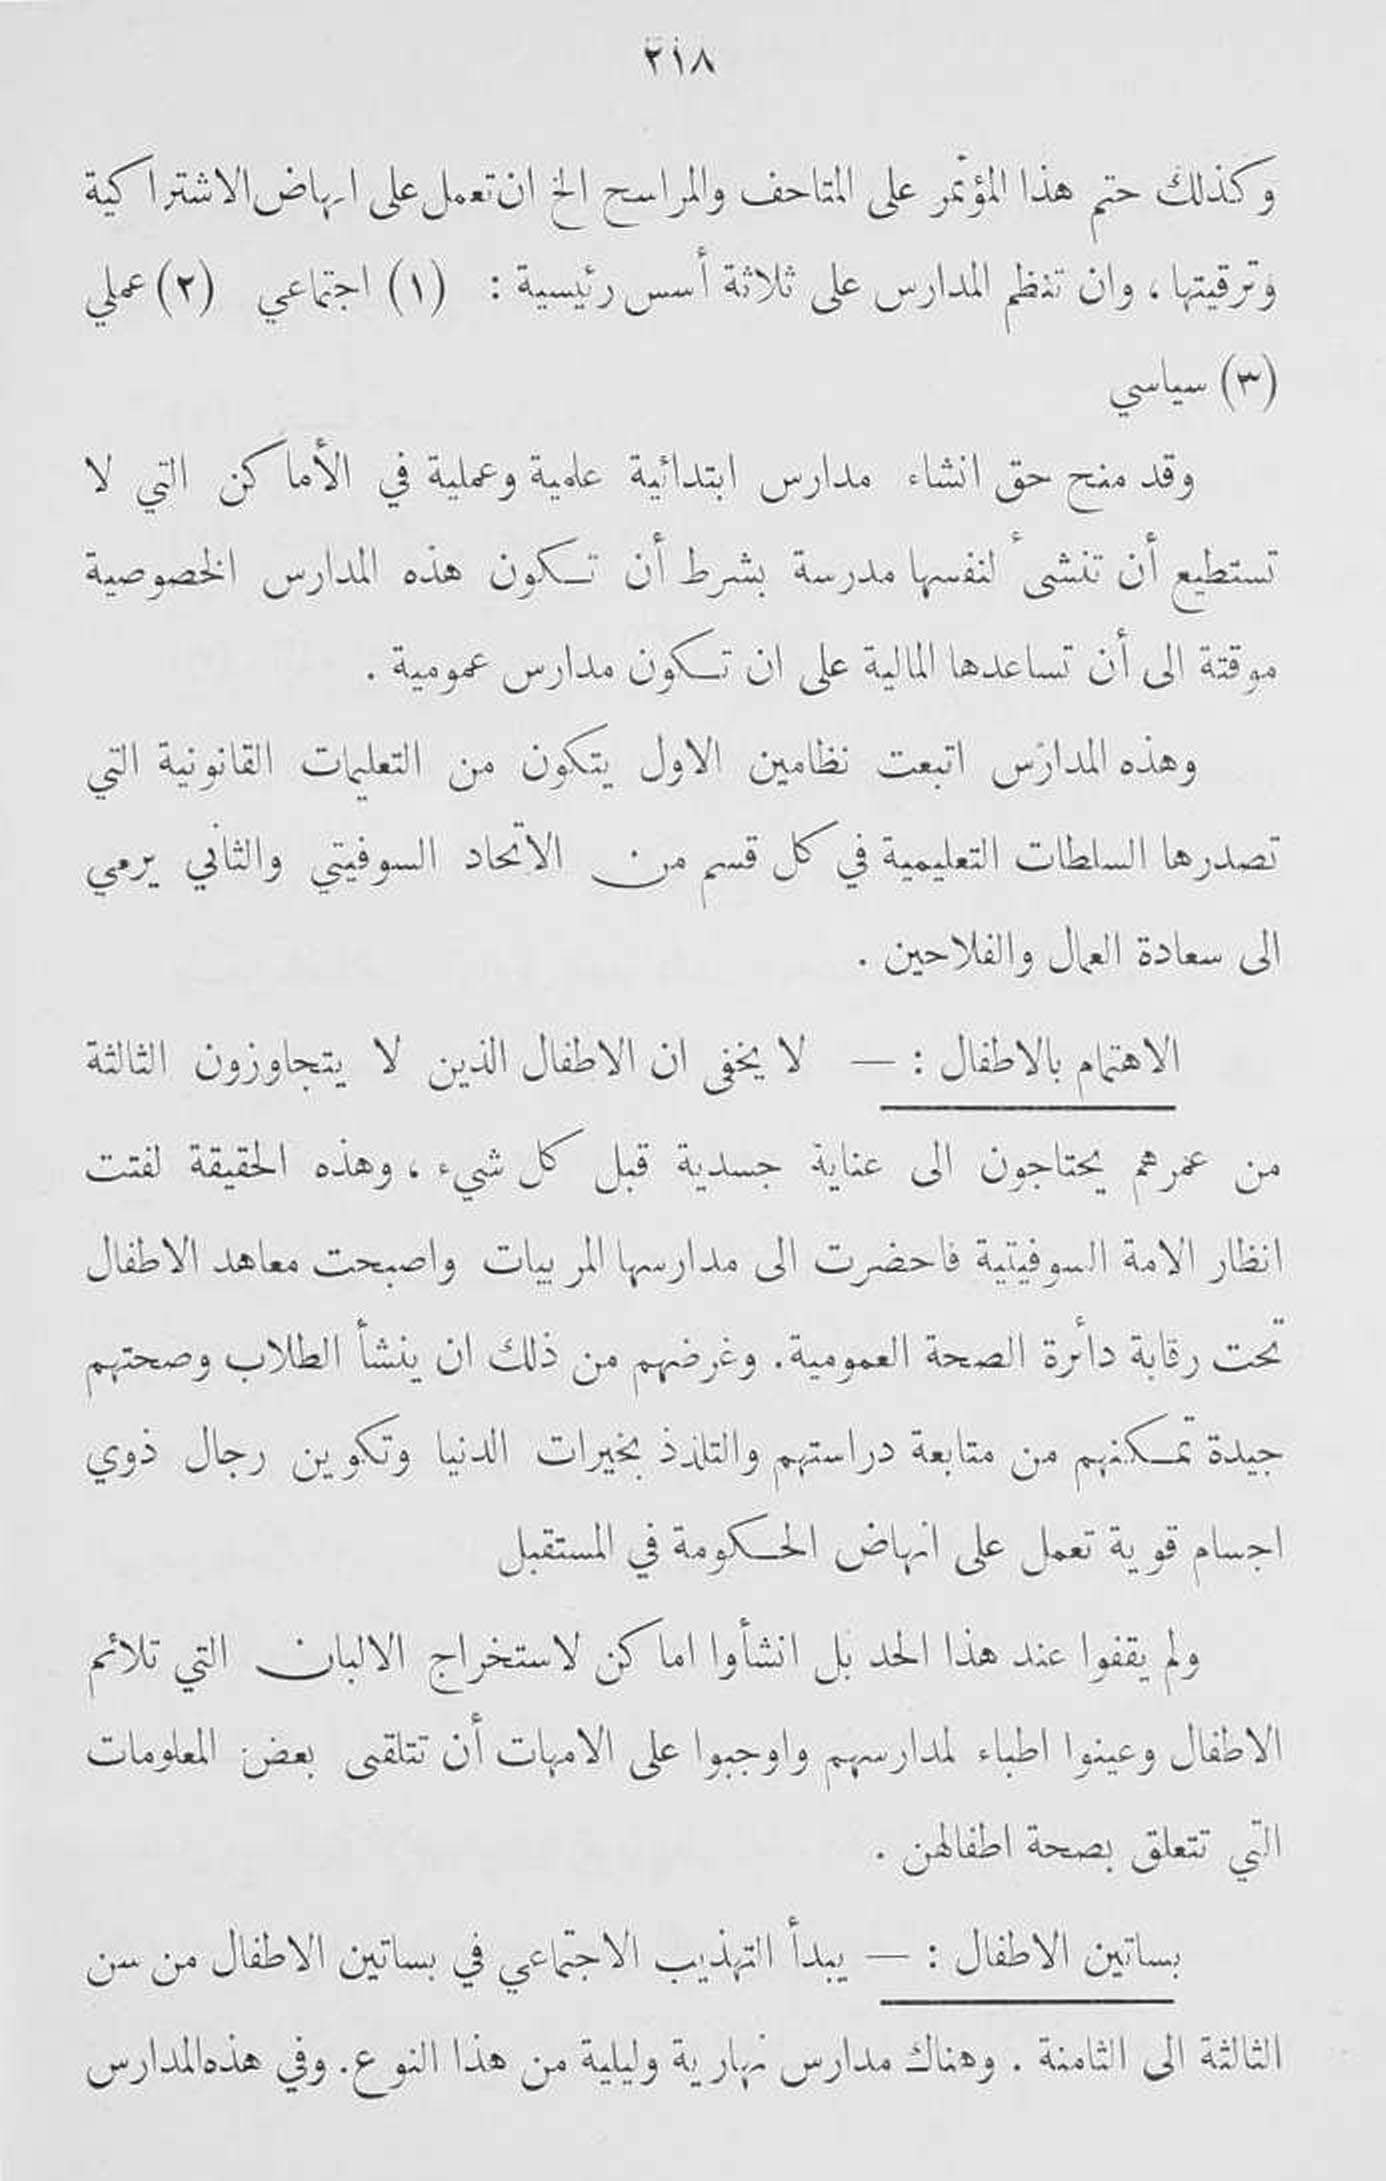 ٢١٨
وكذلك حتم هذا المؤتمر على المتاحف والمراسح الخ ان تعمل على انهاض الاشتراكية
وترقيتها ، وان تنظم المدارس على ثلاثة أسس رئيسية : (١) اجتماعي (٢) عملي
(٣) سياسي
وقد منح حق انشاء مدارس ابتدائية علمية وعملية في الأماكن التي لا
تستطيع أن تنشىء لنفسها مدرسة بشرط أن تكون هذه المدارس الخصوصية
موقتة الى أن تساعدها المالية على ان تكون مدارس عمومية .
وهذه المدارس اتبعت نظامين الاول يتكون من التعليمات القانونية التي
تصدرها السلطات التعليمية في كل قسم من الاتحاد السوفيتي والثاني يرمي
الى سعادة العمال والفلاحين .
الاهتمام بالاطفال : — لا يخفى ان الاطفال الذين لا يتجاوزون الثالثة
من عمرهم يحتاجون الى عناية جسدية قبل كل شيء ، وهذه الحقيقة لفتت
انظار الامة السوفيتية فاحضرت الى مدارسها المربيات واصبحت معاهد الاطفال
تحت رقابة دائرة الصحة العمومية . وغرضهم من ذلك ان ينشأ الطلاب وصحتهم
جيدة تمكنهم من متابعة دراستهم والتلذذ بخيرات الدنيا وتكوين رجال ذوي
اجسام قوية تعمل على انهاض الحكومة في المستقبل
ولم يقفوا عند هذا الحد بل انشأوا اماكن لاستخراج الالبان التي تلائم
الاطفال وعينوا اطباء لمدارسهم واوجبوا على الامهات أن تتلقى بعض المعلومات
التي تتعلق بصحة اطفالهن .
بساتين الاطفال : — يبدأ التهذيب الاجتماعي في بساتين الاطفال من سن
الثالثة الى الثامنة . وهناك مدارس نهارية وليلية من هذا النوع . وفي هذه المدارس